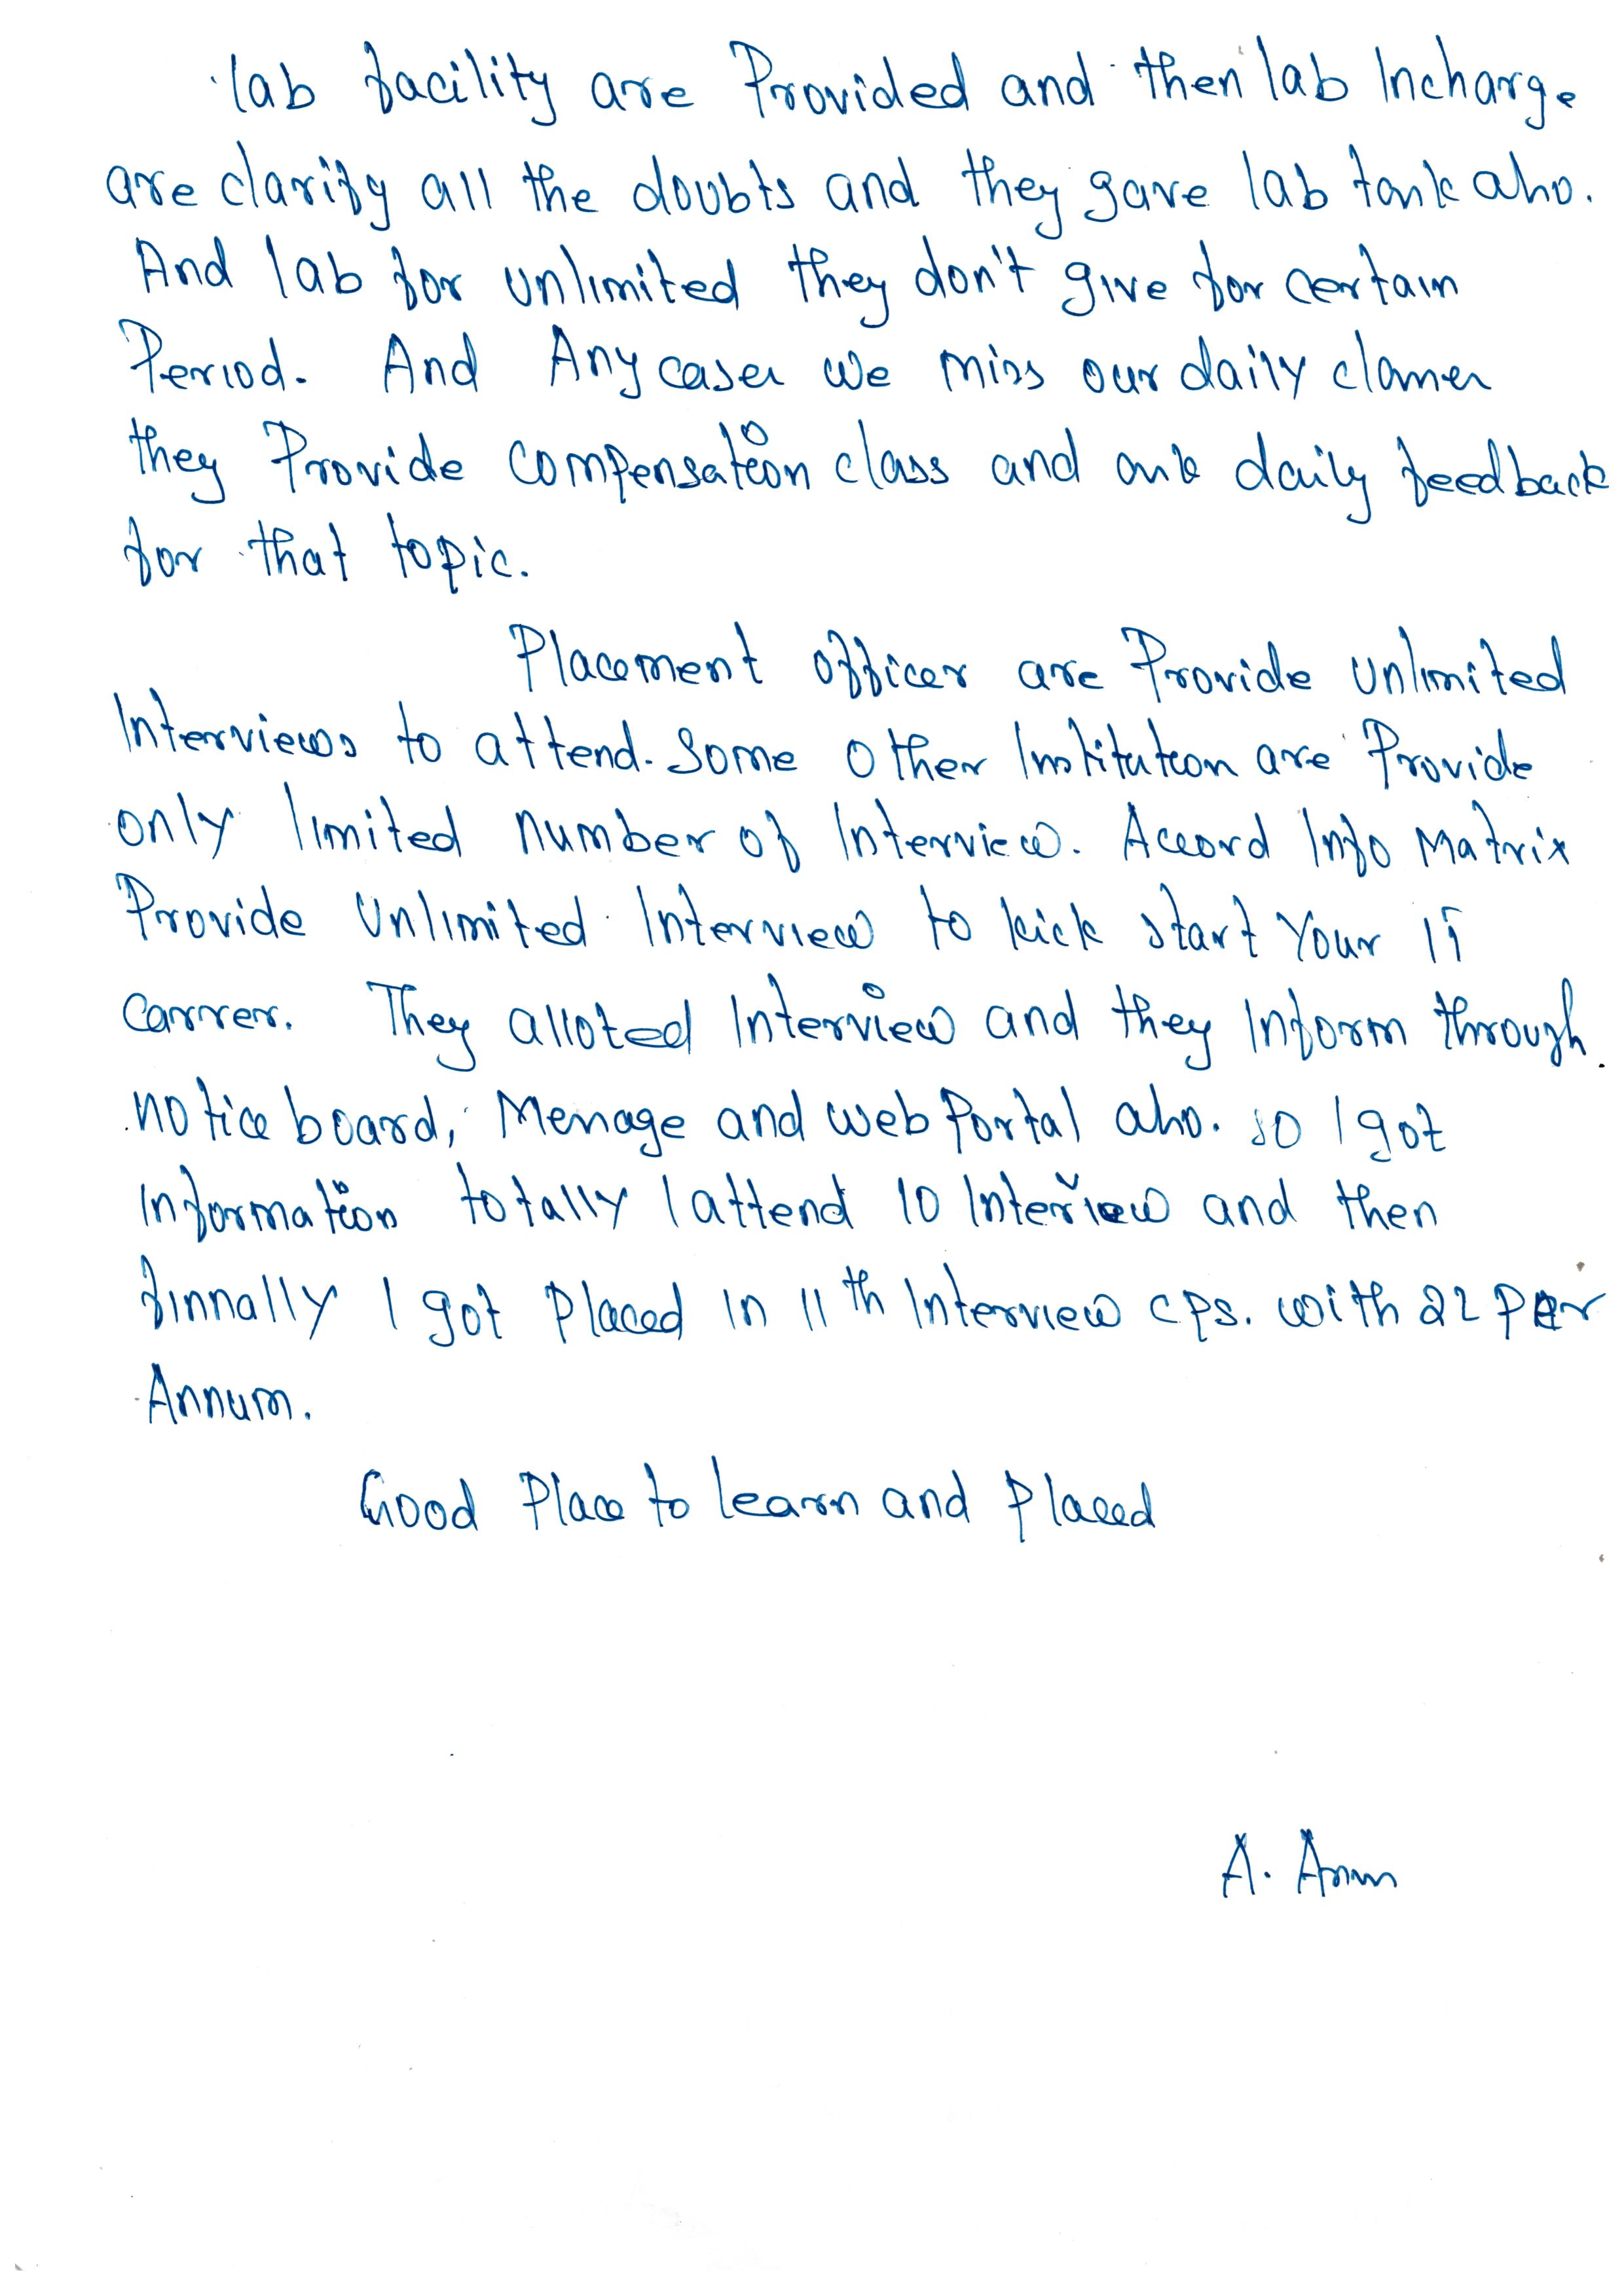 lab facility are Provided and then lab Incharge
are clarify all the doubts and they gave lab task also.
And lab for unlimited they don't give for certain
Period. And Any cases we miss our daily classes
they Provide Compensation class and ask daily feedback
for that topic.
Placement officer are Provide unlimited
Interviews to attend. Some other Institution are Provide
only limited number of Interview. Accord Info Matrix
Provide Unlimited Interview to kick start Your IT
Carrer. They alloted Interview and they Inform through
notice board, Message and web Portal also. so I got
Information totally I attend 10 Interview and then
finnally I got Placed in 11th Interview CPS. with 2L Per
Annum.
Good Place to learn and Placed
A. Arun